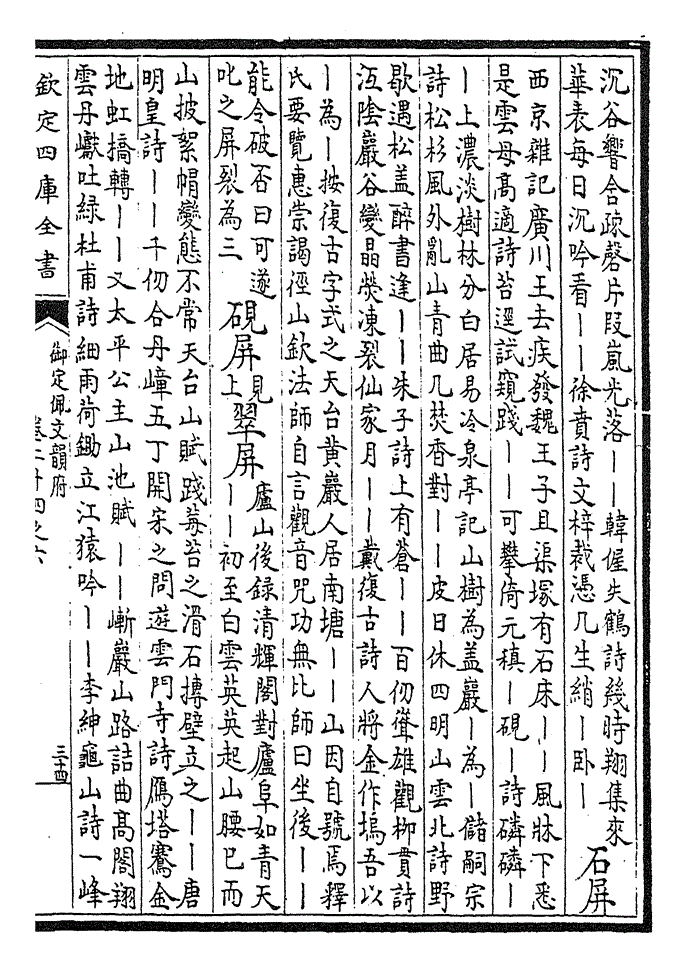 沉谷響合疎磬片段嵐光落丨丨韓偓失鶴詩幾時翔集來
華表每日沉吟看丨丨徐賁詩文梓裁憑几生綃丨卧丨
石屏
西京雜記廣川王去疾發魏王子且渠塚有石床丨丨風牀下悉
是雲母高適詩苔逕試窺踐丨丨可攀倚元稹丨硯丨詩磷磷丨
丨上濃淡樹林分白居易冷泉亭記山樹為盖巖丨為丨儲嗣宗
詩松杉風外亂山青曲几焚香對丨丨皮日休四明山雲北詩野
歇遇松盖醉書逢丨丨朱子詩上有蒼丨丨百仞聳雄觀柳貫詩
沍陰巖谷變晶熒凍裂仙家月丨丨戴復古詩人將金作塢吾以
丨為丨按復古字式之天台黄巖人居南塘丨丨山因自號焉釋
氏要覽惠崇謁徑山欽法師自言觀音咒功無比師曰坐後丨丨
能令破否曰可遂
叱之屏裂為三
硯屏
見
上
翠屏
廬山後録清輝閣對廬阜如青天
丨丨初至白雲英英起山腰已而
山披絮帽變態不常天台山賦踐莓苔之滑石搏壁立之丨丨唐
明皇詩丨丨千仞合丹嶂五丁開宋之問遊雲門寺詩鴈塔騫金
地虹橋轉丨丨又太平公主山池賦丨丨嶄巖山路詰曲高閣翔
雲丹巘吐緑杜甫詩細雨荷鋤立江猿吟丨丨李紳龜山詩一峰
欽定四庫全書
御定佩文韻府
卷二十四之六
三十四